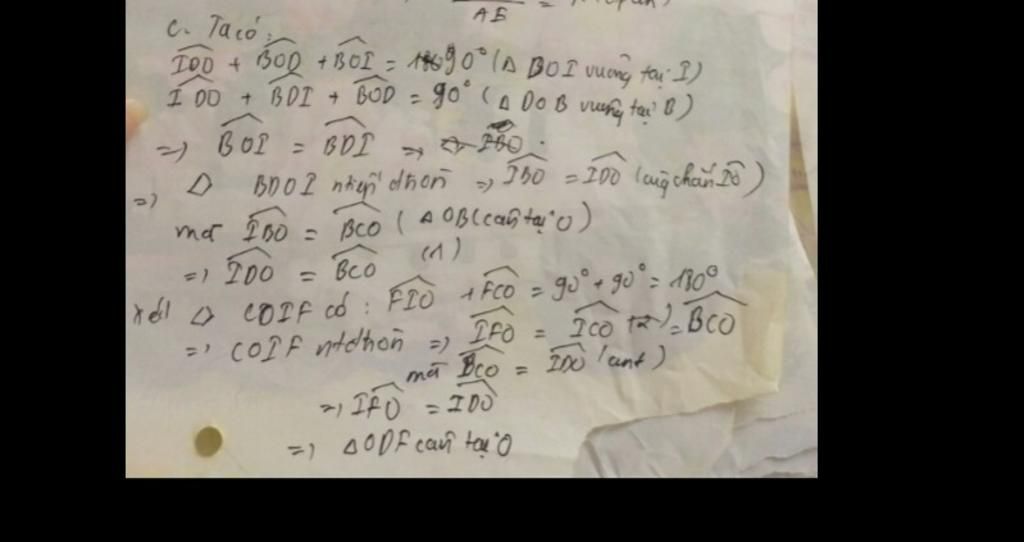 AB =
c. Ta có:
IDO + BOD + BOI = 90° (Δ BOI vuông tại I)
IDO + BDI + BOD = 90° (Δ DOB vuông tại B)
=> BOI = BDI =>
=> BDOI nội tiếp đ tròn => IBO = IDO (cùng chắn IO)
mà IBO = BCO (Δ OBC cân tại O)
=> IDO = BCO (1)
Xét COIF có: FIO + FCO = 90° + 90° = 180°
=> COIF nt đ tròn => IFO = ICO = BCO
mà BCO = IDO (cmt)
=> IFO = IDO
=> ΔODF cân tại O